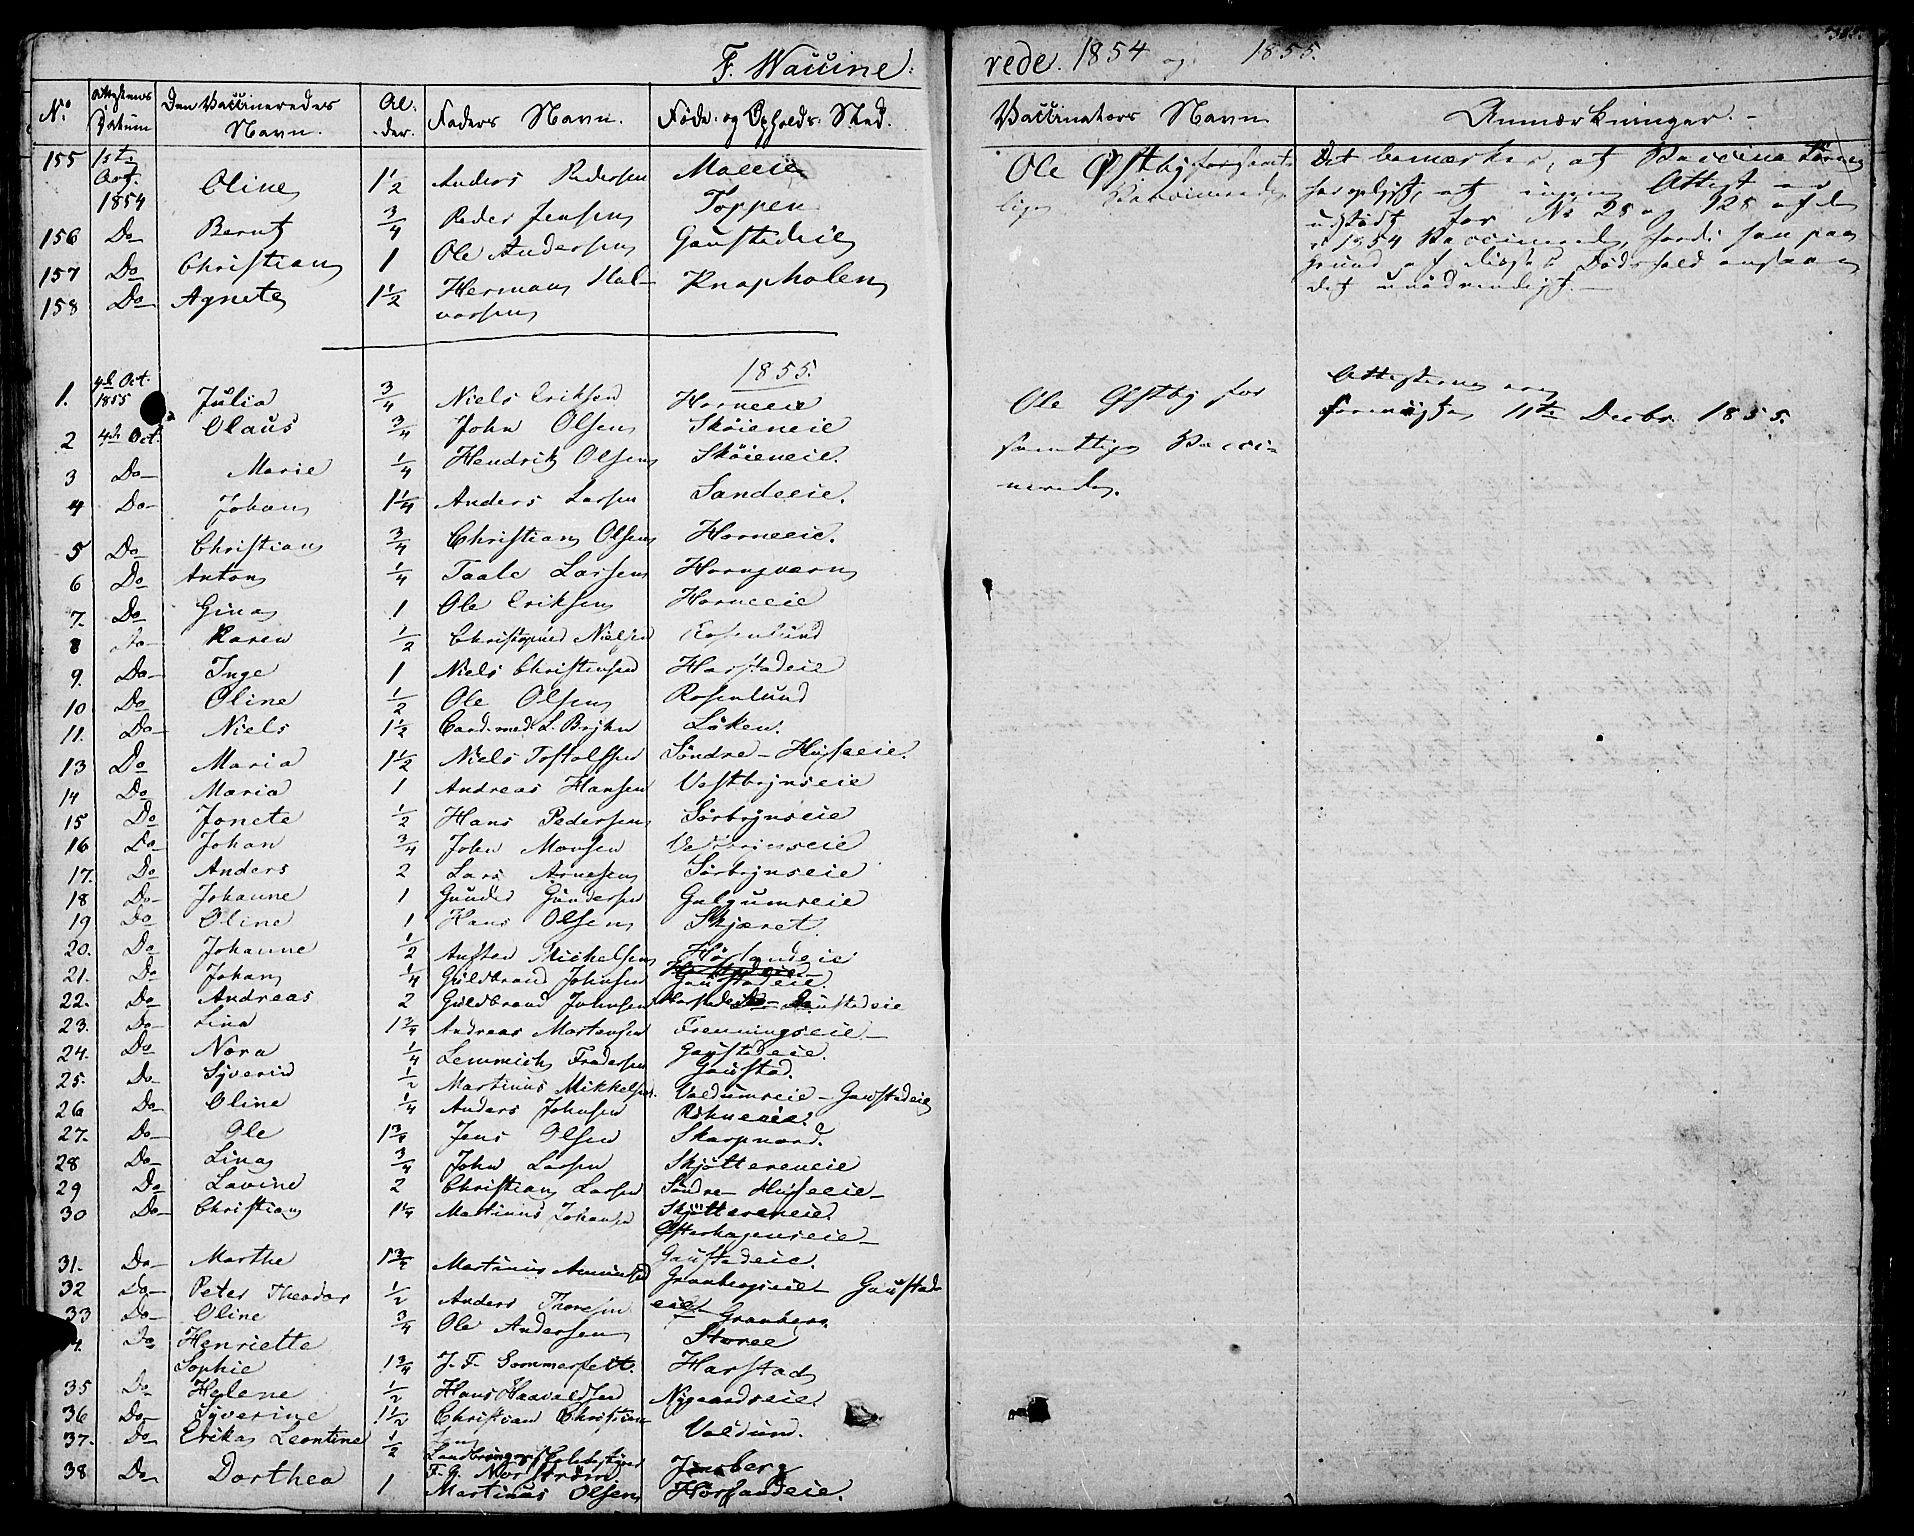 F. Vaccine-
No. Attestens Datum Den Vaccineredes Navn. Al-der. Faders Navn. Føde- og Opholds-Sted.
155 1ste Oct. 1854 Oline 1½ Anders Pedersen Moeeie
156 Do Bernt ¾ Peder Jensen Toppen
157 Do Christian 1 Ole Andersen Gaustadeie
158 Do Agnete 1½ Herman Hal-
vorsen Knapholen
1855.
1. 4de Oct. 1855 Julia ¾ Niels Eriksen Horneeie
2 4de Oct. Olaus ¾ John Olsen Skøieneie
3 Do Marie ¼ Hendrik Olsen Skøieneie.
4 Do Johan 1¼ Anders Larsen Sandeeie.
5 Do Christian ¾ Christian Olsen Horneeie.
6 Do Anton ¼ Taale Larsen
7. Do Gina 1 Ole Eriksen Horneeie
8 Do Karen ½ Christopher Nielsen Rosenlund
9. Do Inge 1 Niels Christensen Harstadeie
10 Do Oline ½ Ole Olsen Rosenlund
11. Do Niels 1½ Cand. med. L. Løken.
13 Do Maria 1½ Niels Søndre-Huseeie.
14 Do Maria 1 Andreas Hansen Vestbynseie
15 Do Jonete ½ Hans Pedersen Sørbynseie
16 Do Johan ¾ John Monsen
17. Do Anders 2 Lars Arnesen Sørbynseie
18 Do Johanne 1 Gunder Gundersen Gulgumseie
19 Do Oline 1 Hans Olsen Skjæret.
20. Do Johanne ½ Austen Michelsen
21. Do Johan ¼ Guldbrand Johnsen Gaustadeie.
22. Do Andreas 2 Guldbrand Johnsen Gaustadeie
23. Do Lina 1¾ Andreas Mortensen Frenningseie
24. Do Nora ¼ Lemmich Gaustadeie.
25. Do Syverin ½ Martinus Mikkelsen Gaustad.
26 Do Oline ¼ Anders Johnsen Valdumseie - Gaustadeie
27. Do Ole 1¾ Jens Olsen Skarpnord.
28 Do Lina ¾ John Larsen Skjøttereneie
29 Do Lavine 2 Christian Larsen Søndre Huseeie
30 Do Christian 1¼ Martinus Johansen Skjøttereneie.
Østerhagenseie-
31. Do Marthe 1¾ Martinus Amundsen Gaustadeie.
32 Do Peter Theodor ½ Anders Thoresen Granbergseie Gaustad-
eie
33 Do Oline ¾ Ole Andersen Granberg
Do Henriette Storee
Sophie 1¾ J. F. Sommerfelt. Harstad
35 Do Helene ½ Hans Haavelsen Nygaardseie.
36 Do Syverine 1½ Christian Christian-
sen Valdum.
37. Do Erika Leontine ½ Landbrugsskolebestyrer
F. G. Norstrøm Jensberg
38 Do Dorthea 1 Martinus Olsen Hørsandeie.
rede. 1854 og 1855.
Vaccinators Navn Anmærkninger.
Ole Østby for samt-
lige Vaccinerede
Det bemærkes, at Vaccina
har oplyst, at ingen Attest er
udstedt for No 25 og 125 af de
i 1854 Vaccinerede, fordi han paa
Grund af disses Dødsfald ansaae
det unødvendigt.
Ole Østby for
samtlige Vacci-
nerede.
Attesterne ere
11te Decbr 1855.